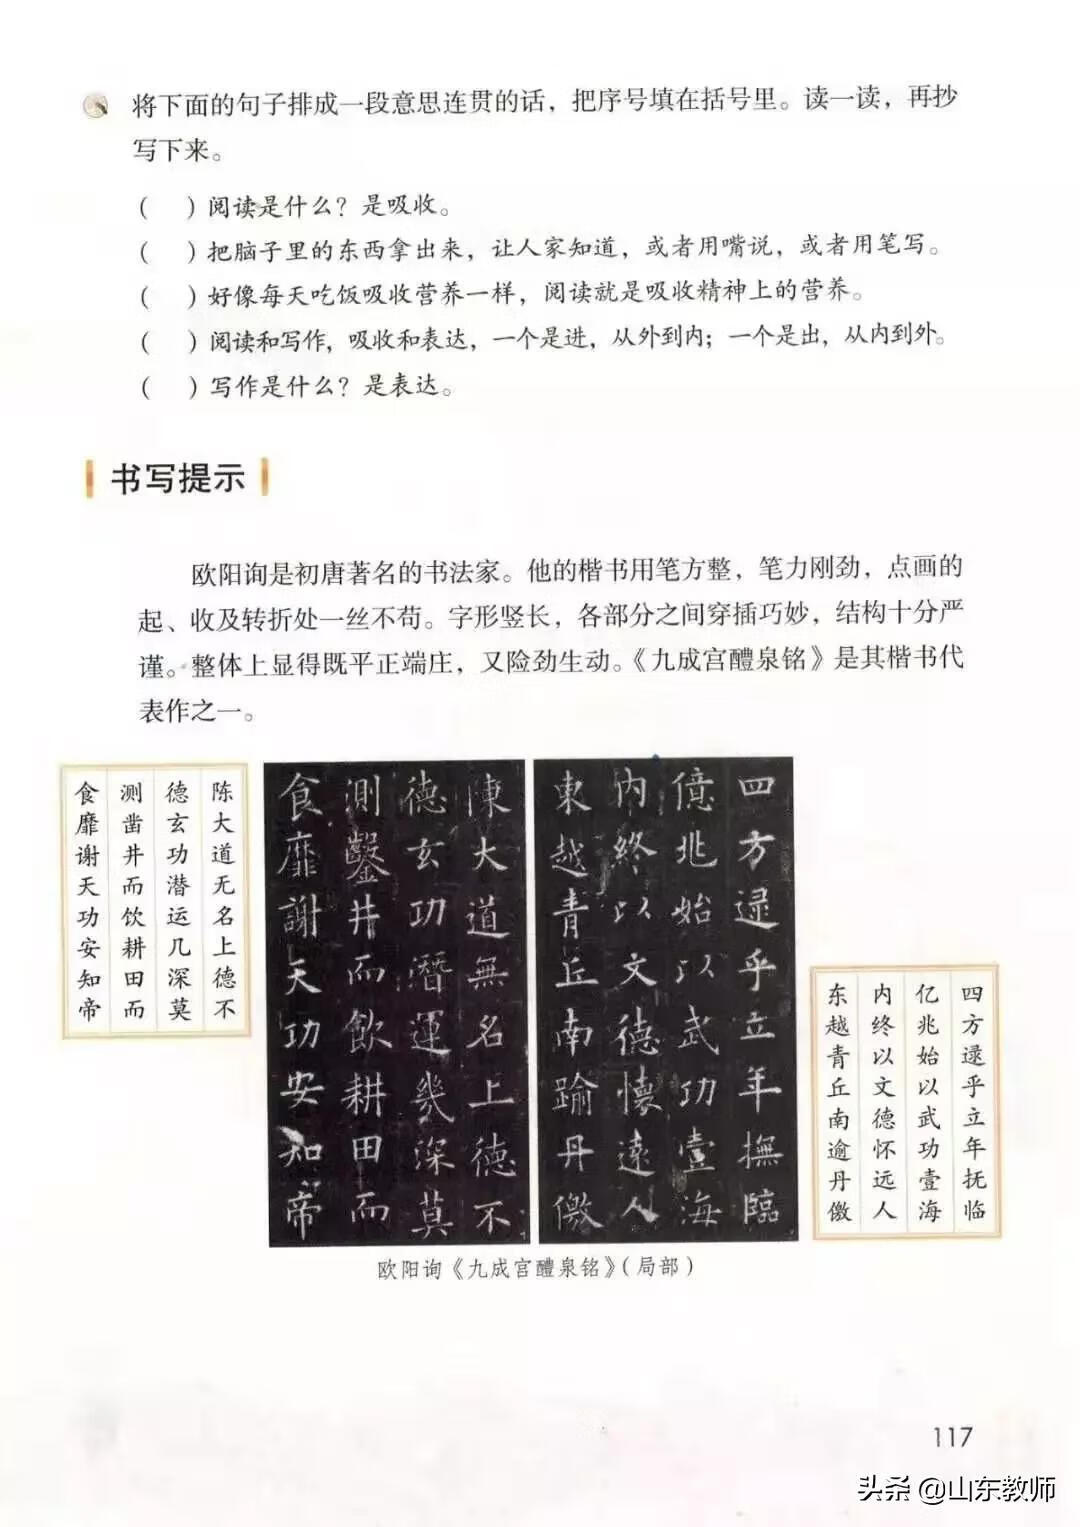 将下面的句子排成一段意思连贯的话，把序号填在括号里。读一读，再抄
写下来。
（　）阅读是什么？是吸收。
（　）把脑子里的东西拿出来，让人家知道，或者用嘴说，或者用笔写。
（　）好像每天吃饭吸收营养一样，阅读就是吸收精神上的营养。
（　）阅读和写作，吸收和表达，一个是进，从外到内；一个是出，从内到外。
（　）写作是什么？是表达。
书写提示
欧阳询是初唐著名的书法家。他的楷书用笔方整，笔力刚劲，点画的
起、收及转折处一丝不苟。字形竖长，各部分之间穿插巧妙，结构十分严
谨。整体上显得既平正端庄，又险劲生动。《九成宫醴泉铭》是其楷书代
表作之一。
四方逯乎立年撫臨
億兆始以武功壹海
内終以文德懐遠人
東越青丘南踰丹儌
陳大道無名上德不
德玄功潛運幾深莫
測鑿井而飲耕田而
食靡謝天功安知帝
四方逯乎立年抚临
亿兆始以武功壹海
内终以文德怀远人
东越青丘南逾丹儌
陈大道无名上德不
德玄功潜运几深莫
测凿井而饮耕田而
食靡谢天功安知帝
欧阳询《九成宫醴泉铭》（局部）
117
头条 @山东教师